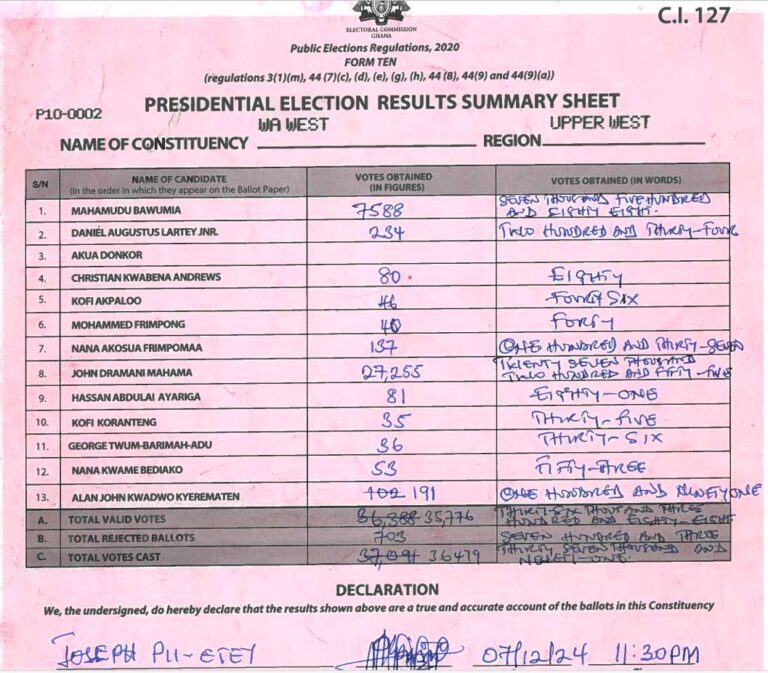 C.I. 127
ELECTORAL COMMISSION
GHANA
Public Elections Regulations, 2020
FORM TEN
(regulations 3(1)(m), 44 (7)(c), (d), (e), (g), (h), 44 (8), 44(9) and 44(9)(a))
P10-0002
PRESIDENTIAL ELECTION RESULTS SUMMARY SHEET
NAME OF CONSTITUENCY WA WEST REGION UPPER WEST
S/N NAME OF CANDIDATE (In the order in which they appear on the Ballot Paper) VOTES OBTAINED (IN FIGURES) VOTES OBTAINED (IN WORDS)
1. MAHAMUDU BAWUMIA 7588 SEVEN THOUSAND FIVE HUNDRED AND EIGHTY EIGHT.
2. DANIEL AUGUSTUS LARTEY JNR. 234 TWO HUNDRED AND THIRTY-FOUR
3. AKUA DONKOR
4. CHRISTIAN KWABENA ANDREWS 80 EIGHTY
5. KOFI AKPALOO 46 FOURTY SIX
6. MOHAMMED FRIMPONG 40 FORTY
7. NANA AKOSUA FRIMPOMAA 137 ONE HUNDRED AND THIRTY-SEVEN
8. JOHN DRAMANI MAHAMA 27,255 TWENTY SEVEN THOUSAND TWO HUNDRED AND FIFTY-FIVE
9. HASSAN ABDULAI AYARIGA 81 EIGHTY-ONE
10. KOFI KORANTENG 35 THIRTY-FIVE
11. GEORGE TWUM-BARIMAH-ADU 36 THIRTY-SIX
12. NANA KWAME BEDIAKO 53 FIFTY-THREE
13. ALAN JOHN KWADWO KYEREMATEN 102 191 ONE HUNDRED AND NINETYONE
A. TOTAL VALID VOTES 36,388 35,776 THIRTY-SIX THOUSAND THREE HUNDRED AND EIGHTY-EIGHT
B. TOTAL REJECTED BALLOTS 703 SEVEN HUNDRED AND THREE
C. TOTAL VOTES CAST 37,091 36479 THIRTY SEVEN THOUSAND AND NINETY-ONE.
DECLARATION
We, the undersigned, do hereby declare that the results shown above are a true and accurate account of the ballots in this Constituency
JOSEPH 07/12/24 11:30PM